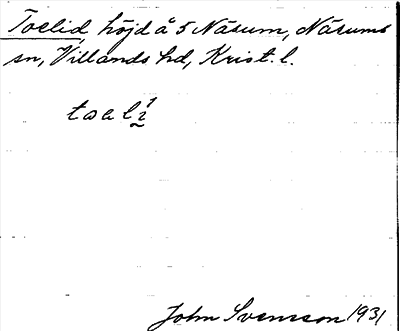 Toelid, höjd å 5 Näsum, Näsums
sn, Villands hd, Krist. l.
John Svensson 1931